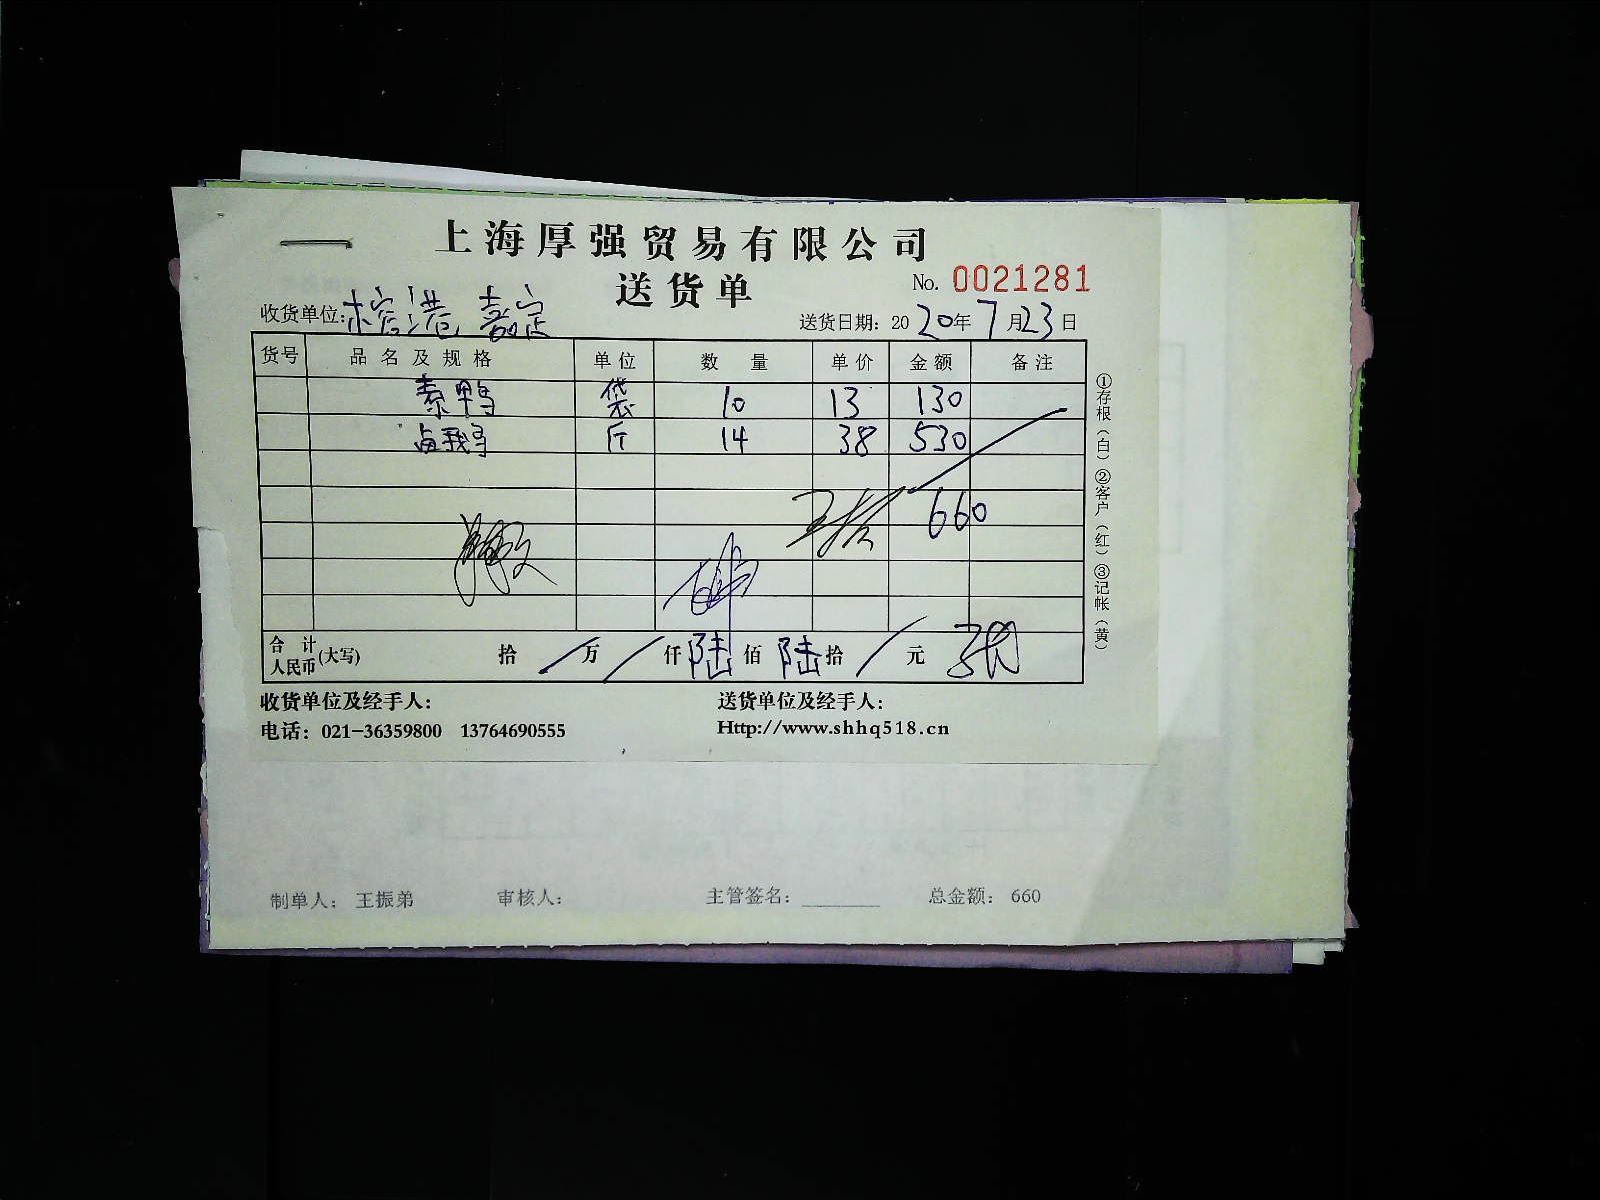 上海厚强贸易有限公司
送货单
No. 0021281
收货单位: 榕港 嘉定
送货日期: 2020年7月23日
货号 品名及规格 单位 数量 单价 金额 备注
素鸭 袋 10 13 130
卤鹅 斤 14 38 530
660
合计人民币(大写) 拾 / 万 / 仟 陆 佰 陆 拾 / 元
①存根(白) ②客户(红) ③记帐(黄)
收货单位及经手人: 送货单位及经手人:
电话: 021-36359800 13764690555 Http://www.shhq518.cn
制单人: 王振弟 审核人: 主管签名: ________ 总金额: 660